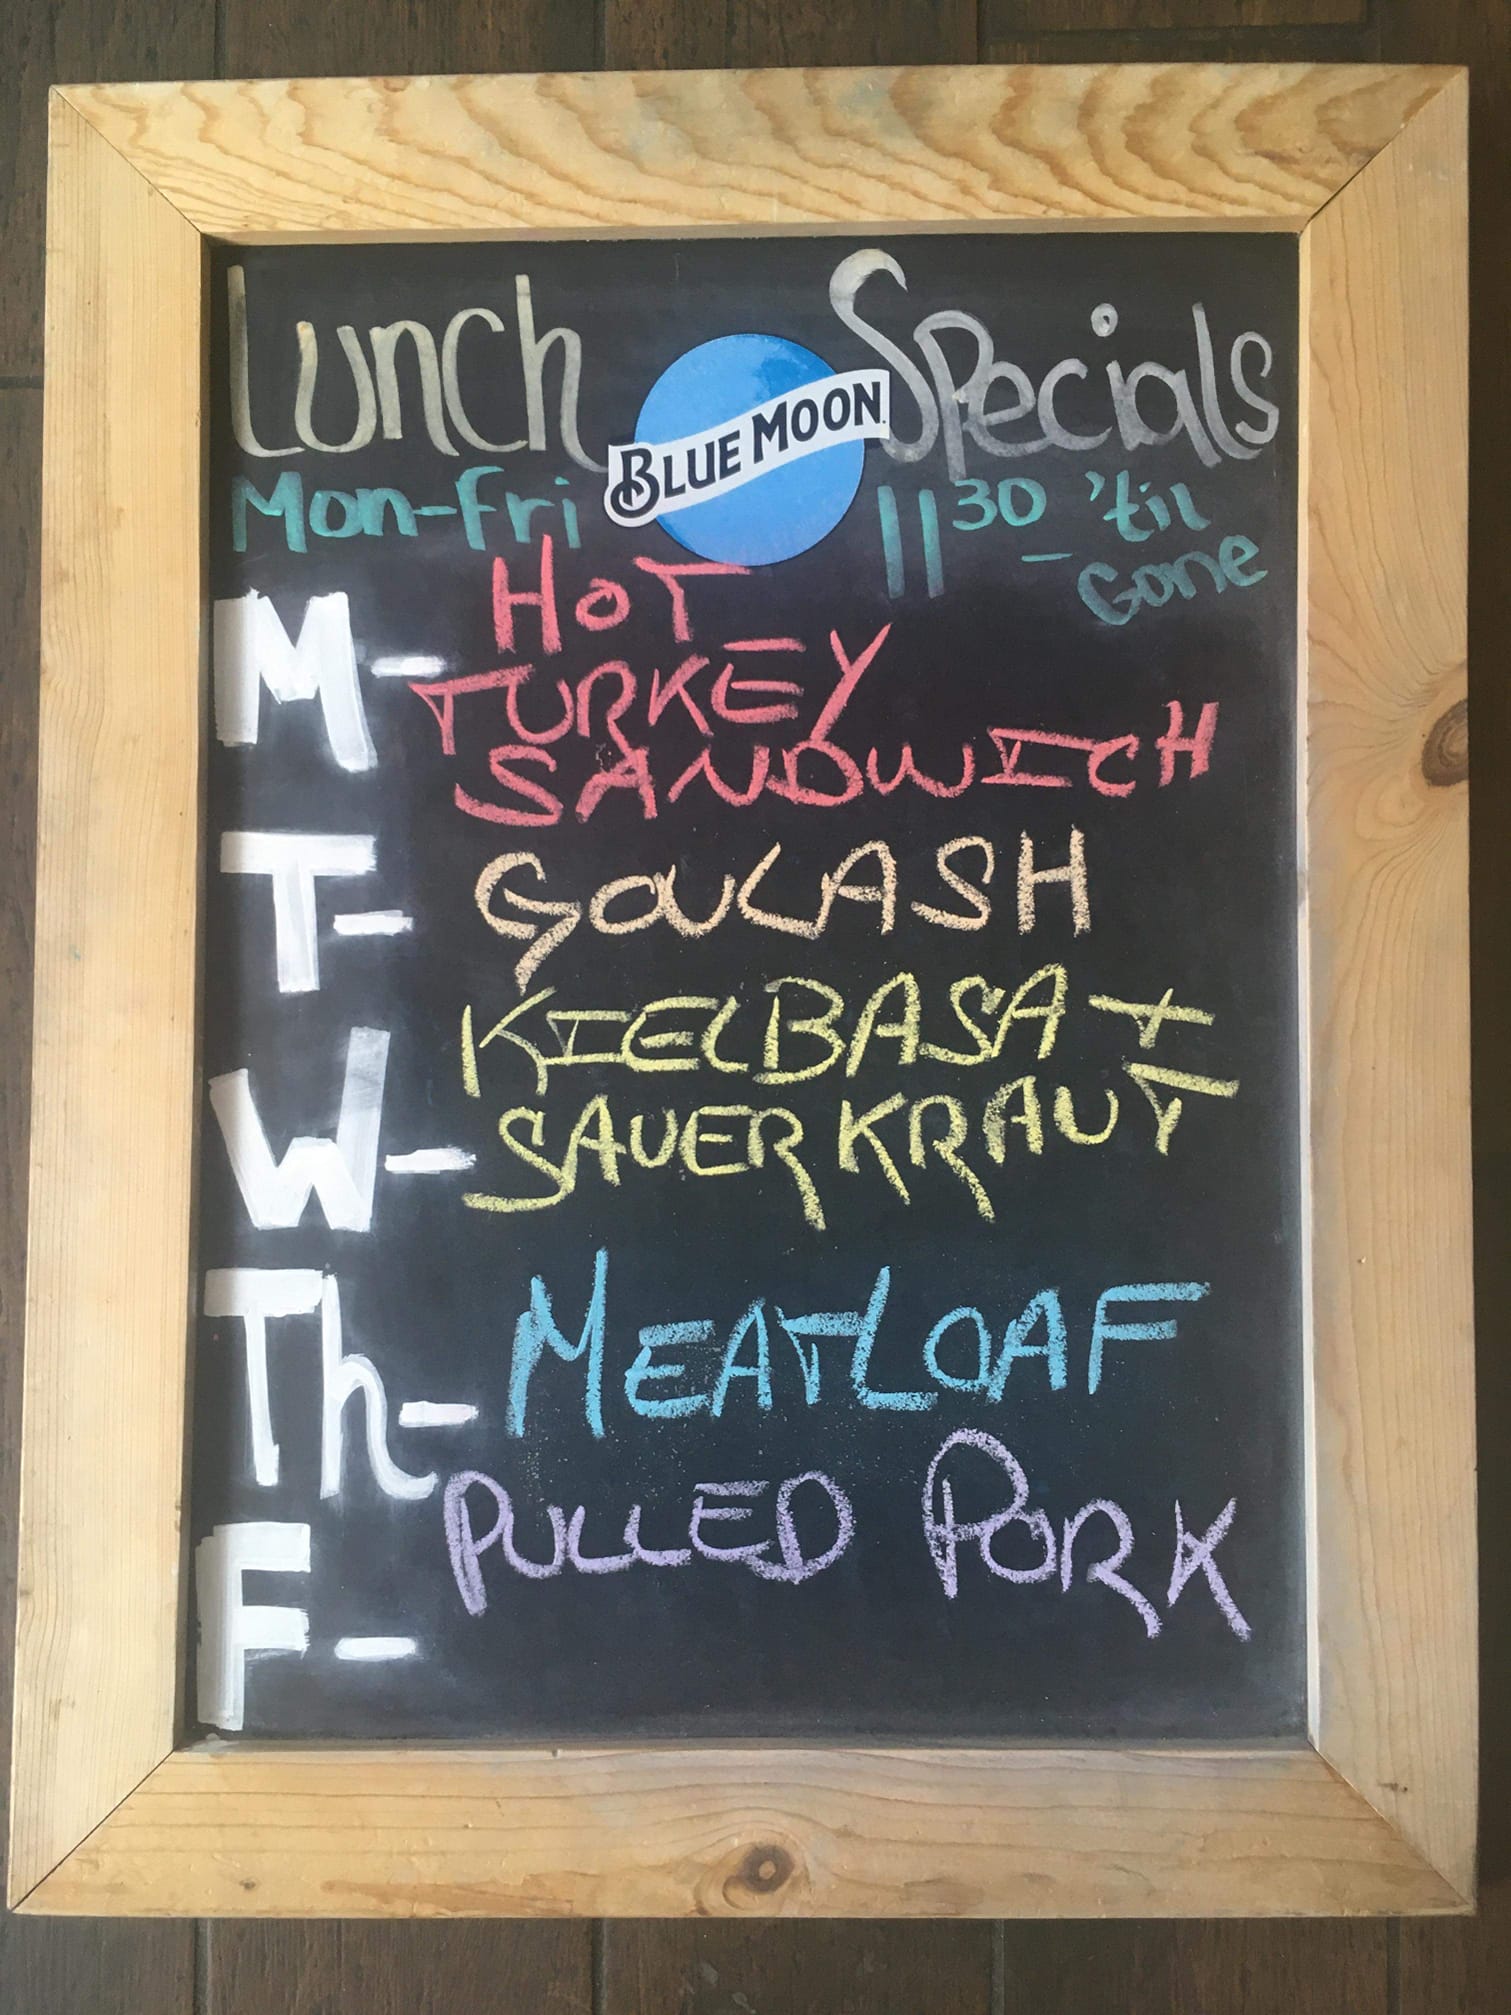 Lunch Specials
BLUE MOON
Mon-Fri 11 30 - 'til Gone
M- HOT
TURKEY
SANDWICH
T- GOULASH
W- KIELBASA +
SAUERKRAUT
Th- MEATLOAF
F- PULLED PORK